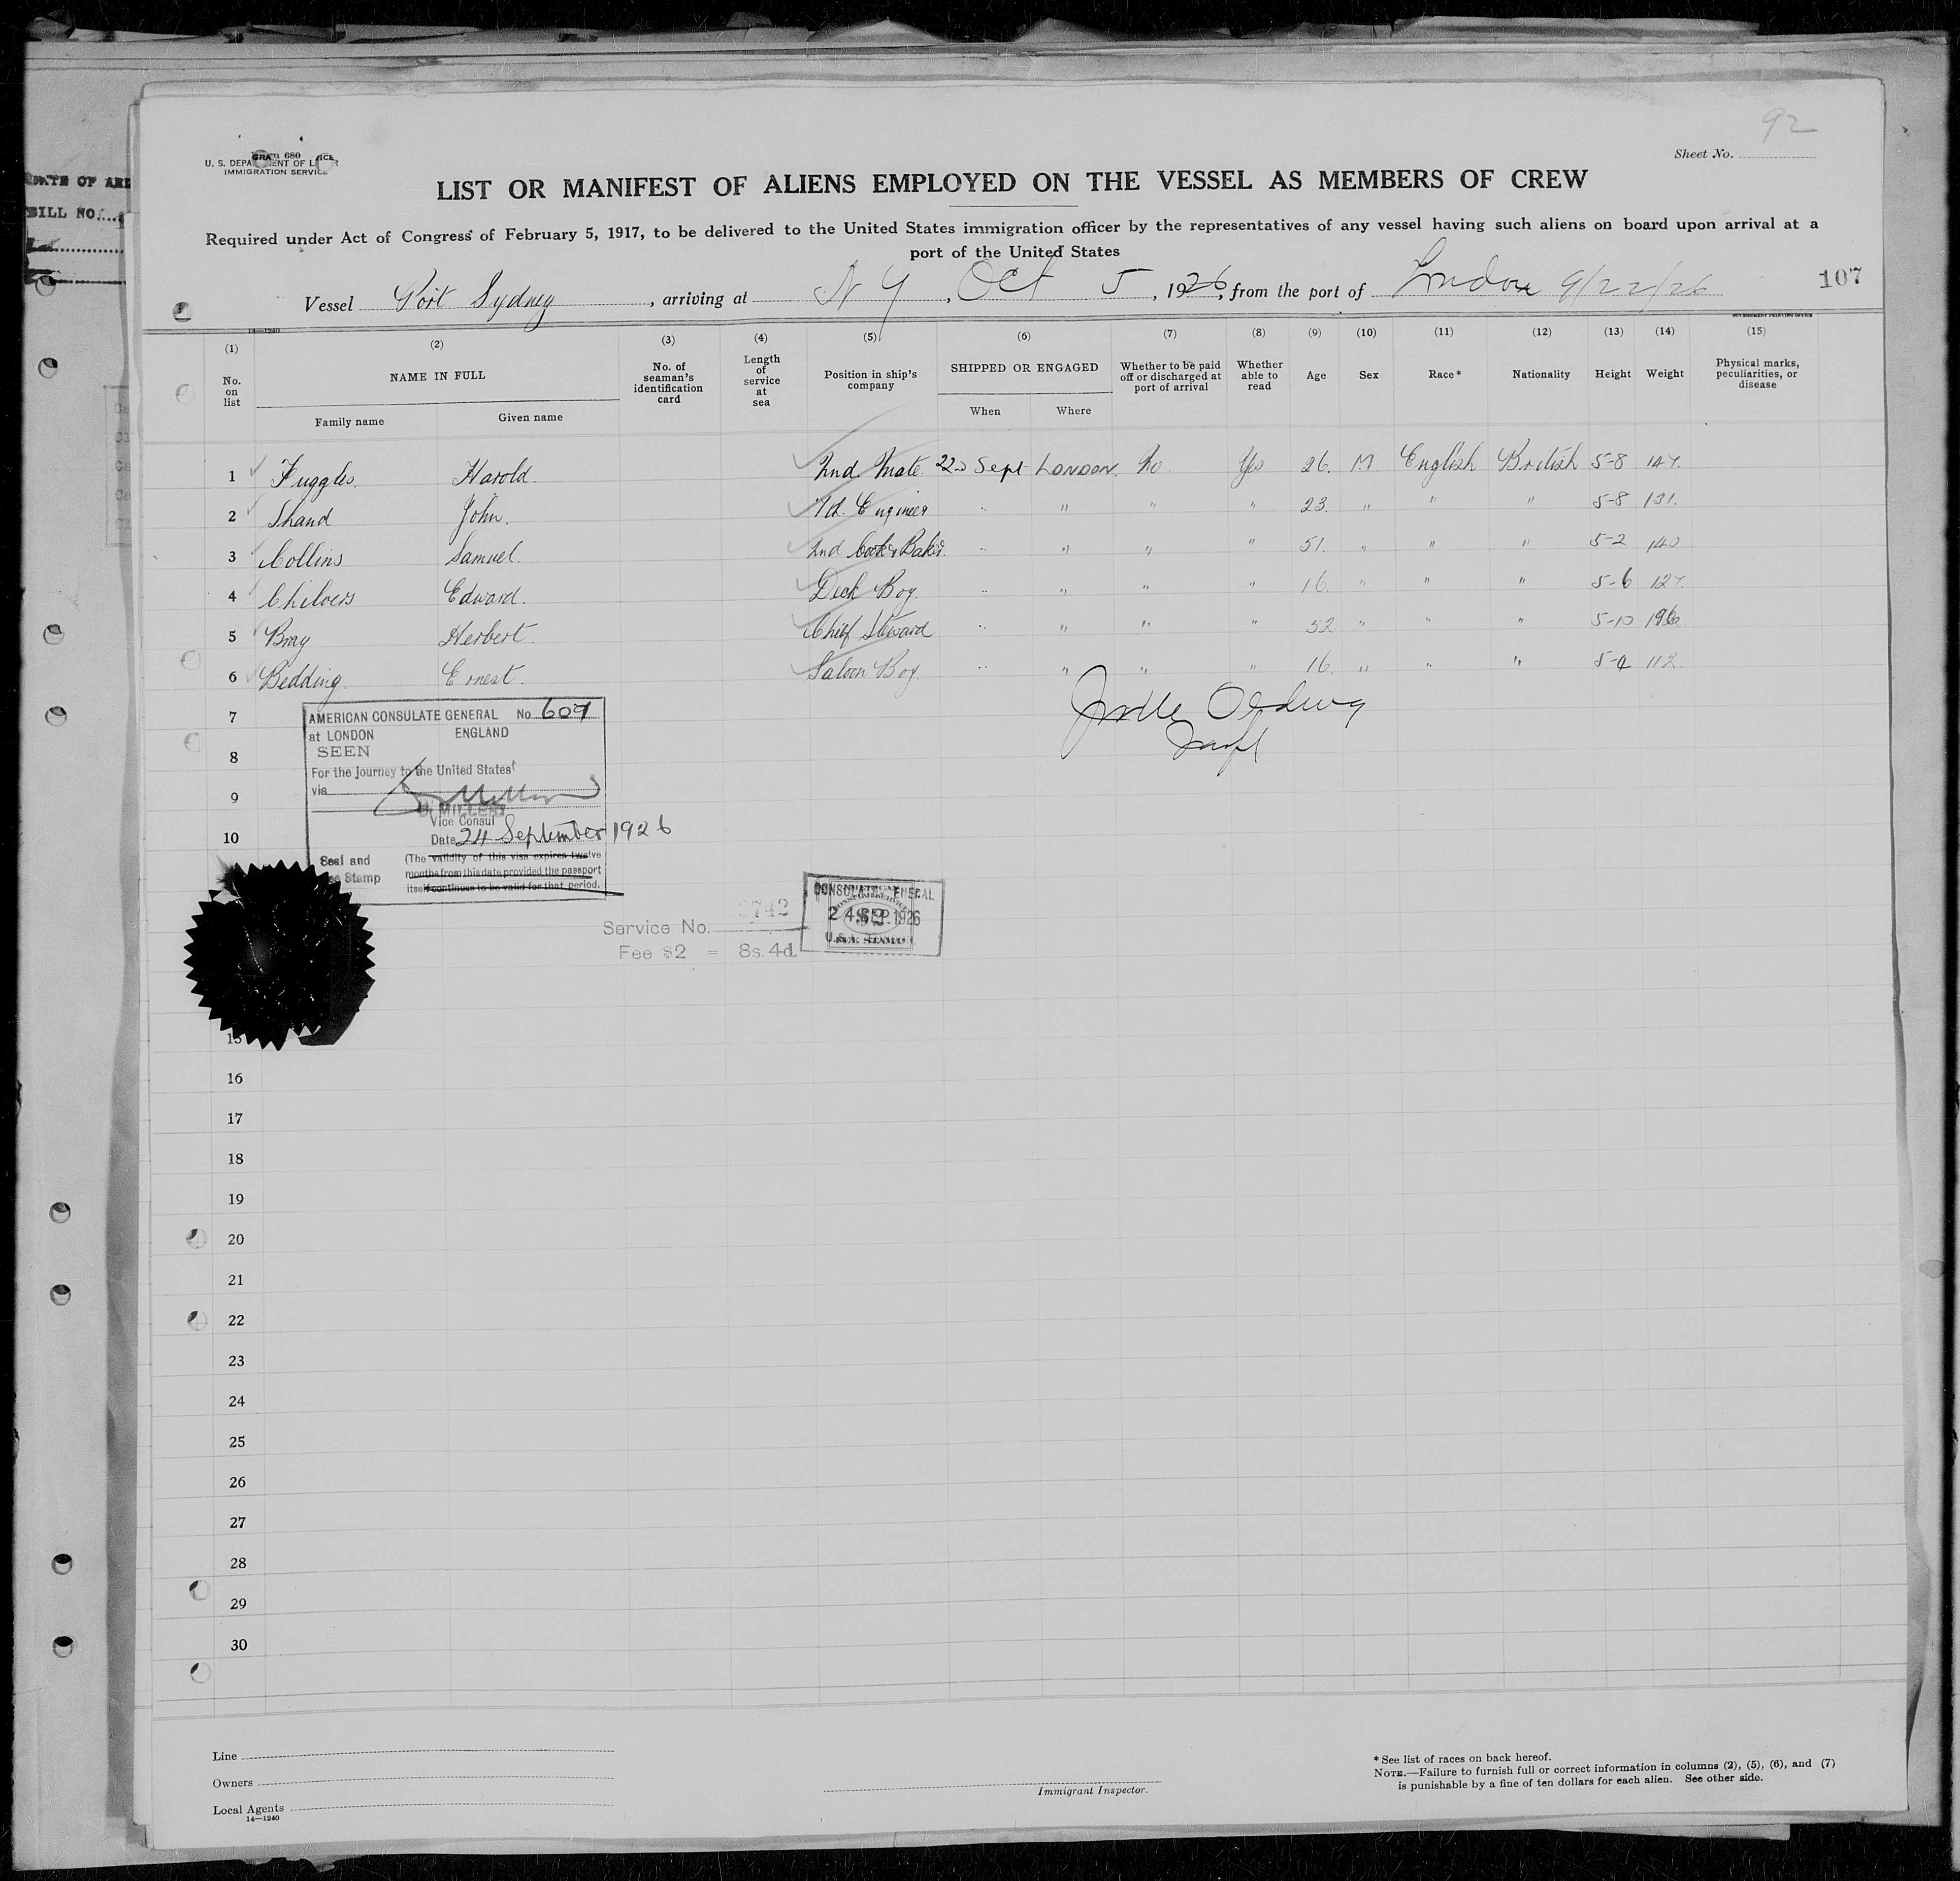 92
Form 680
U. S. DEPARTMENT OF LABOR
IMMIGRATION SERVICE
Sheet No.
DATE OF
BILL NO.
LIST OR MANIFEST OF ALIENS EMPLOYED ON THE VESSEL AS MEMBERS OF CREW
Required under Act of Congress of February 5, 1917, to be delivered to the United States immigration officer by the representatives of any vessel having such aliens on board upon arrival at a
port of the United States
Vessel Port Sydney, arriving at N Y, Oct 5, 1926, from the port of London 9/22/26
107
14—1240
GOVERNMENT PRINTING OFFICE
(1) (2) (3) (4) (5) (6) (7) (8) (9) (10) (11) (12) (13) (14) (15)
No. on list NAME IN FULL No. of seaman's identification card Length of service at sea Position in ship's company SHIPPED OR ENGAGED Whether to be paid off or discharged at port of arrival Whether able to read Age Sex Race* Nationality Height Weight Physical marks, peculiarities, or disease
Family name Given name When Where
1 Fuggles. Harold. 2nd Mate. 22nd Sept LONDON. No. Yes 26. M English British 5-8 147.
2 Shand John. Engineer " " " " 23. " " " 5-8 131.
3 Collins Samuel. 2nd Cook & Baker. " " " " 51. " " " 5-2 140
4 Chilvers Edward. Deck Boy. " " " " 16. " " " 5-6 127.
5 Bray Herbert. Chief Steward " " " " 52 " " " 5-10 196
6 Bedding. Ernest. Saloon Boy. " " " " 16. " " " 5-4 112.
7
8
9
10
AMERICAN CONSULATE GENERAL No. 607
at LONDON ENGLAND
SEEN
For the journey to the United States
via
MILLER
Vice Consul
Date 24 September 1926
Seal and
Fee Stamp
(The validity of this visa expires twelve
months from this date provided the passport
itself continues to be valid for that period.
Service No. 3742
Fee $2 = 8s. 4d.
CONSULATE GENERAL
24 SEP. 1926
$2
FEE STAMP
15
16
17
18
19
20
21
22
23
24
25
26
27
28
29
30
Line
Owners
Local Agents
14—1240
Immigrant Inspector.
*See list of races on back hereof.
NOTE.—Failure to furnish full or correct information in columns (2), (5), (6), and (7)
is punishable by a fine of ten dollars for each alien. See other side.